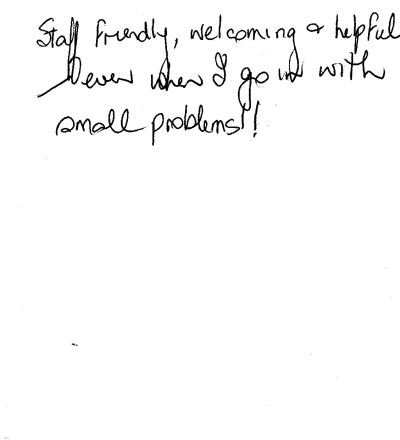 Staff friendly, welcoming & helpful
even when I go in with
small problems!!